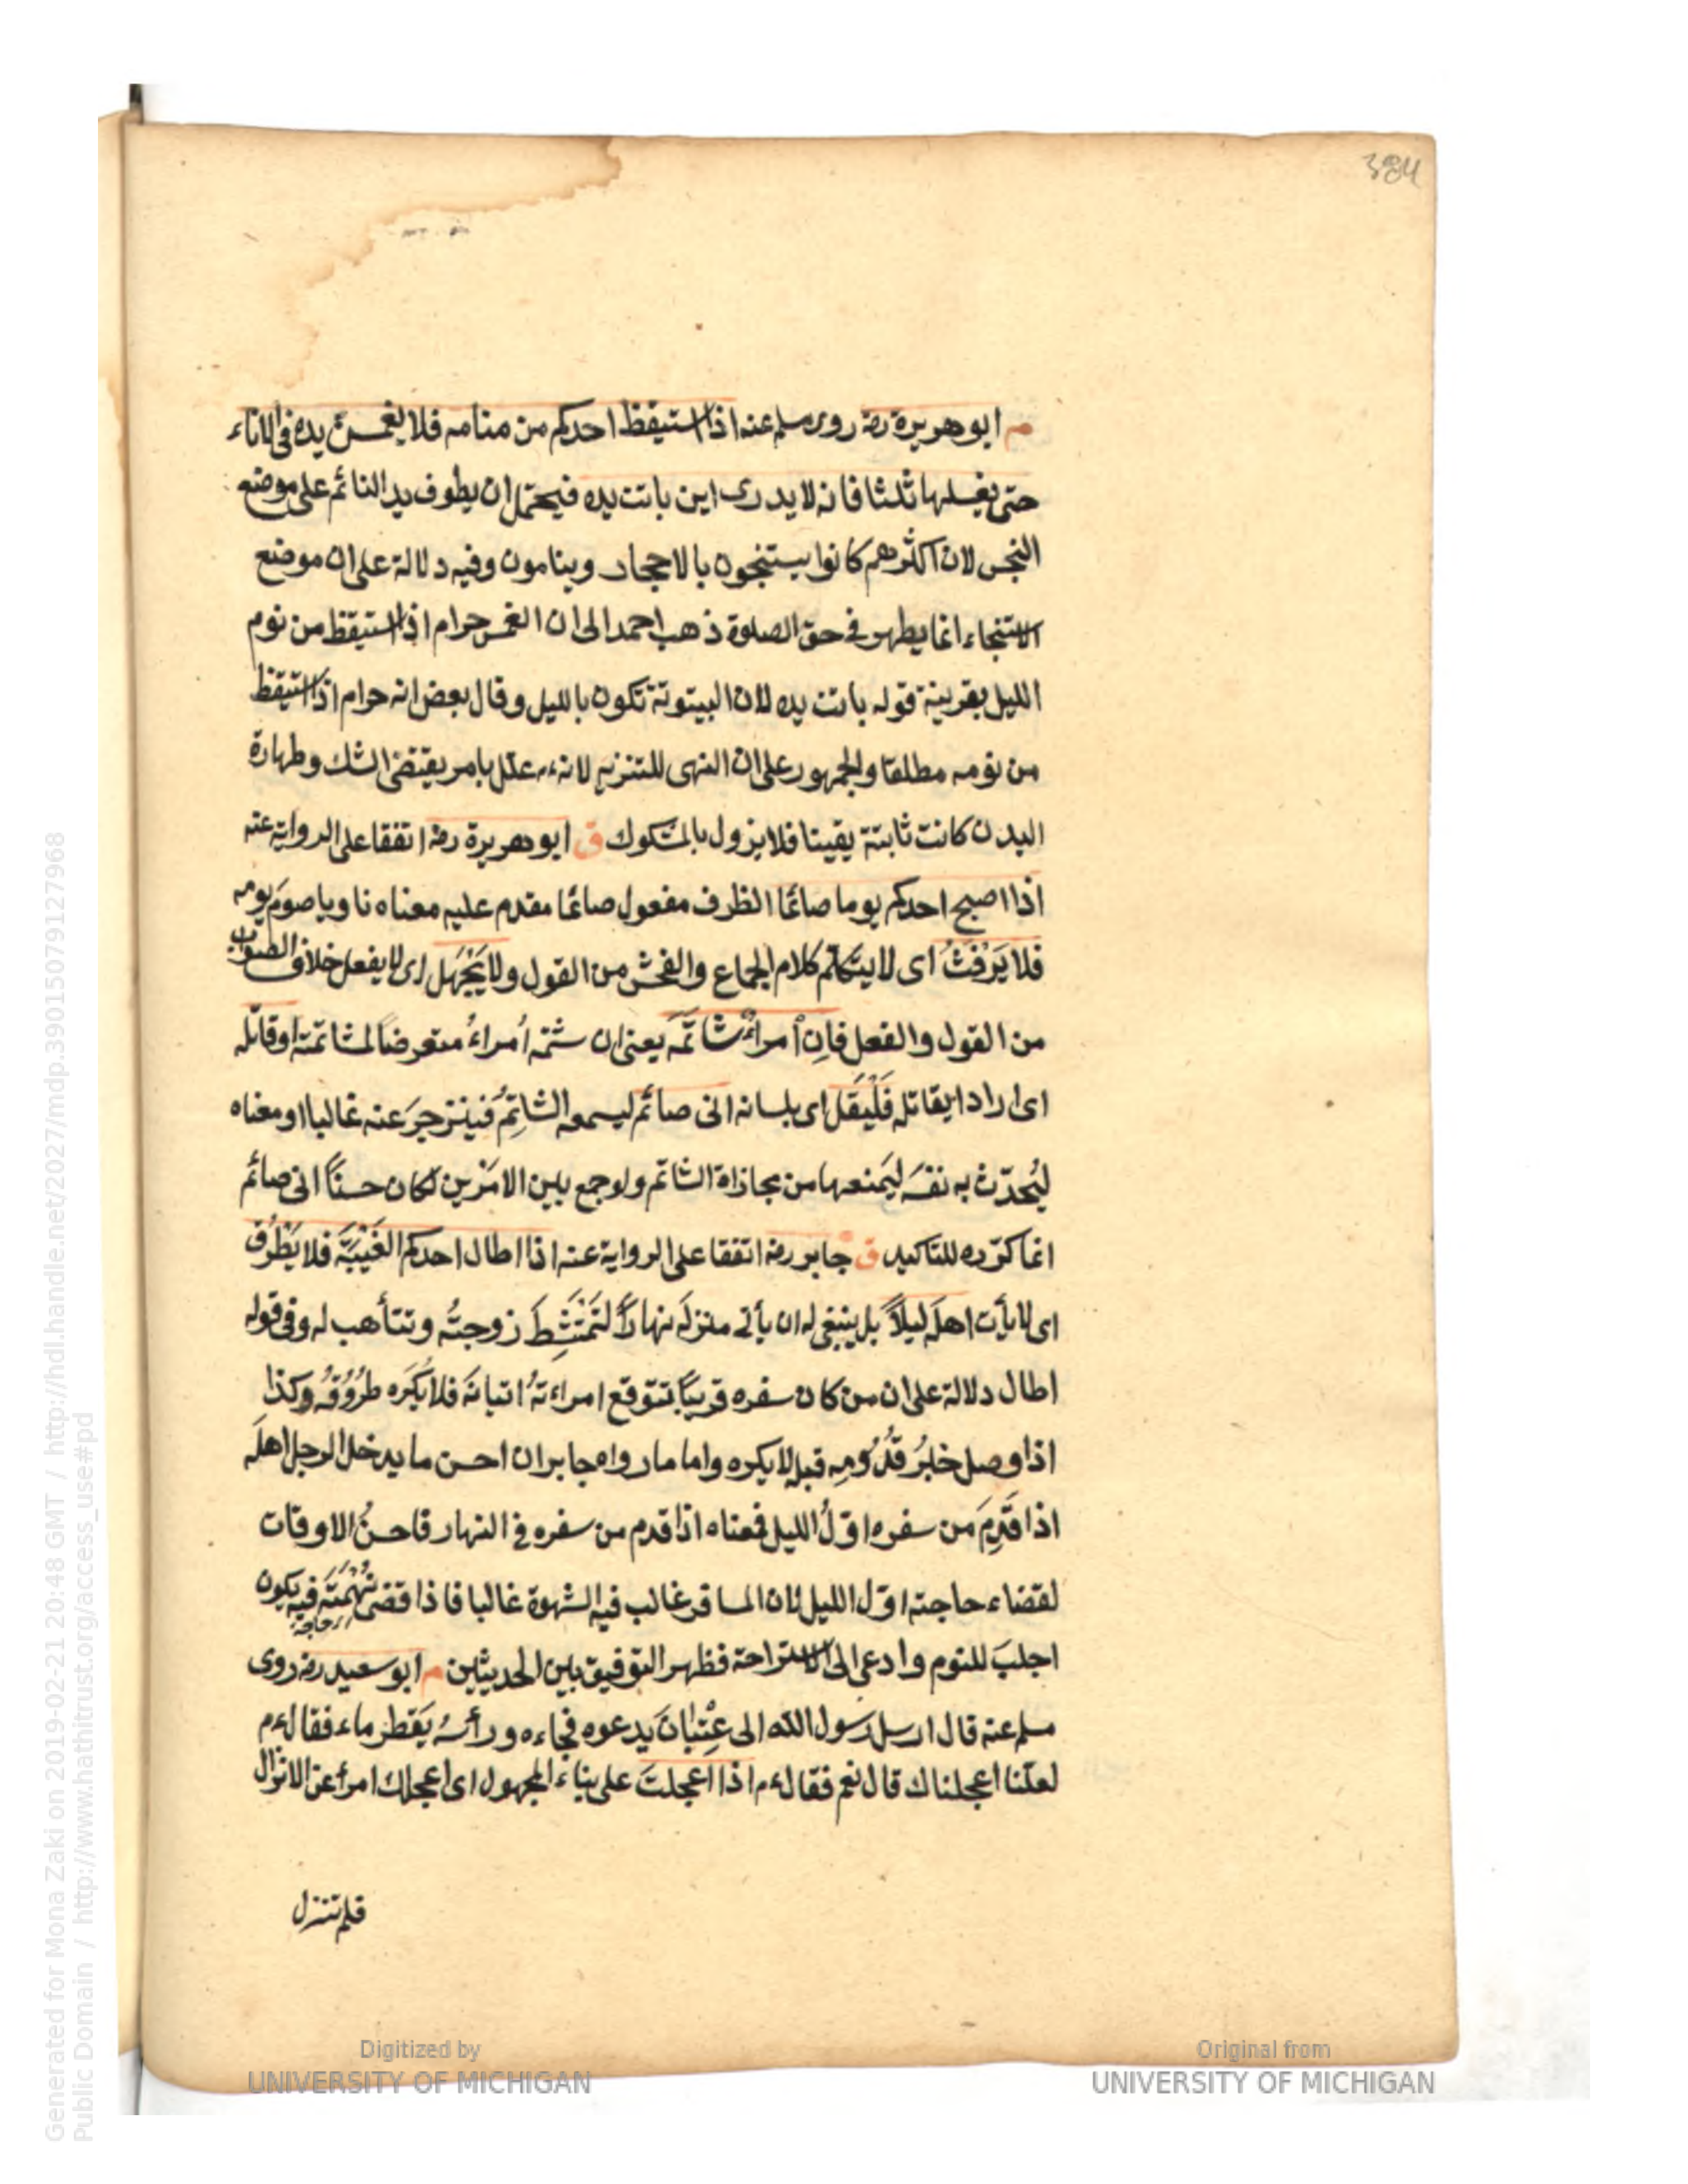 384
م ابو هريرة رضه روى مسلم عنه اذا استيقظ احدكم من منامه فلا يغمس يده فى الاناء
حتى يغسلها ثلثا فانه لا يدرى اين باتت يده فيحتمل ان يطوف يد النائم على موضع
النجس لان اكثرهم كانوا يستنجون بالاحجار وينامون وفيه دلالة على ان موضع
الاستنجاء انما يطهر فى حق الصلوة ذهب احمد الى ان الغمس حرام اذا استيقظ من نوم
الليل بقرينة قوله باتت يده لان البيتوتة تكون بالليل وقال بعض انه حرام اذا استيقظ
من نومه مطلقا والجمهور على ان النهى للتنزيه لانه عم علل بامر يقتضى الشك وطهارة
البدن كانت ثابتة يقينا فلا يزول بالمشكوك ق ابو هريرة رضه اتفقا على الرواية عنه
اذا اصبح احدكم يوما صائما الظرف مفعول صائما مقدم عليه معناه ناويا صوم يومه
فلا يَرْفَثْ اى لا يتكلم كلام الجماع والفحش من القول ولا يَجْهَل اى لا يفعل خلاف الصواب
من القول والفعل فاِن اْمراءٌ شاتَمَه يعنى ان شتمه اُمراءٌ متعرضاً لمشاتمته اوقاتله
اى اراد ايقاتله فَلْيَقُل اى بلسانه انى صائم ليسمعه الشاتِمُ فينزجرَ عنه غالبا او معناه
ليُحدّث به نفسَه ليَمنعها من مجازاة الشاتم ولو جمع بين الامَرْين لكان حسنًا انى صائم
انما كرّره للتاكيد ق جابر رضه اتفقا على الرواية عنه اذا اطال احدكم الغَيْبَةَ فلا يَطْرُق
اى لا يأت اهلَه ليلاً بل ينبغى له ان يأتى منزلَه نهاراً لتَمْتَشِطَ زوجتُه وتتأهب له وفى قوله
اطال دلالة على ان من كان سفره قريبًا تتوقع امراءته اتيانَه فلا يُكْرَه طُرُوقُه وكذا
اذا وصل خبرُ قُدُومِه قبل لا يكره واما ما رواه جابر ان احسن ما يدخل الرجل اهلَه
اذا قَدِمَ من سفره اوّلُ الليل فمعناه اذا قدم من سفره فى النهار فاحسنُ الاوقات
لقضاء حاجته اوّل الليل لان المسافر غالب فيه الشهوة غالبا فاذا قضى نَهْمَتَه فيه يكون
حاجة
اجلبَ للنوم وادعى الى الاستراحة فظهر التوفيق بين الحديثين م ابو سعيد رضه روى
مسلم عنه قال ارسل رسول الله الى عِتْبانَ يدعوه فجاءه ورأسُه يَقطر ماء فقال عم
لعلنا اعجلناك قال نعم فقال عم اذا اعجلتَ على بناء المجهول اى اعجلك امرأ عن الانزال
فلم تنزل
Generated for Mona Zaki on 2019-02-21 20:48 GMT / http://hdl.handle.net/2027/mdp.39015079127968
Public Domain / http://www.hathitrust.org/access_use#pd
Digitized by
UNIVERSITY OF MICHIGAN
Original from
UNIVERSITY OF MICHIGAN